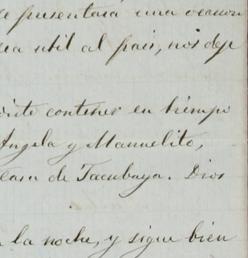 se presentara una ocasion
util al pais, nos deje
contener en tiempo
Angela y Manuelito,
casa de Tacubaya. Dios
la noche, y sigue bien